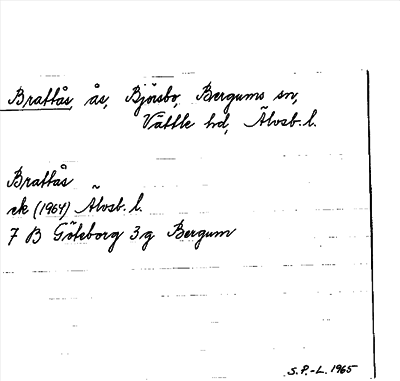 Brattås, ås, Björsbo, Bergums sn,
Vättle hd, Älvsb. l.
Brattås
ek (1964) Älvsb. l.
7 B Göteborg 3 g Bergum
S.P.-L. 1965